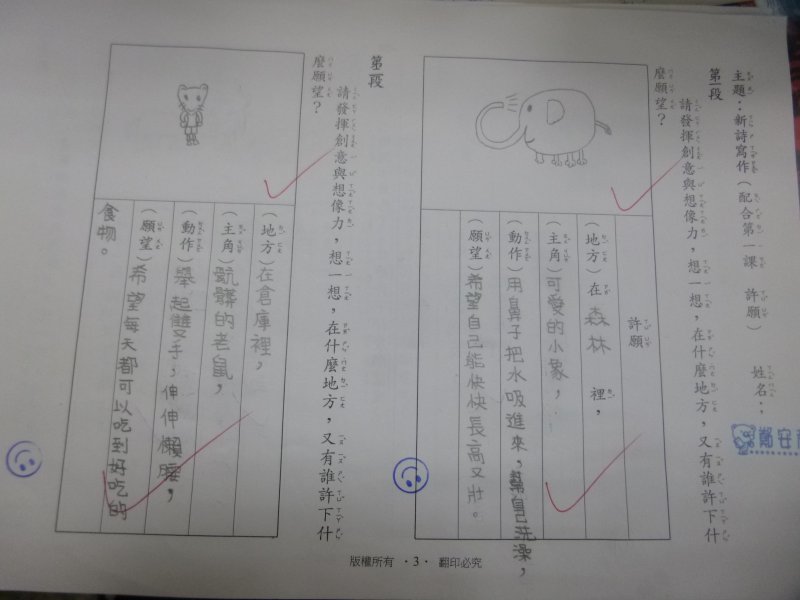 主題：新詩寫作（配合第一課　許願）　姓名：
第一段
請發揮創意與想像力，想一想，在什麼地方，又有誰許下什
麼願望？
許願
（地方）在森林裡，
（主角）可愛的小象，
（動作）用鼻子把水吸進來，幫自己洗澡，
（願望）希望自己能快快長高又壯。
第二段
請發揮創意與想像力，想一想，在什麼地方，又有誰許下什
麼願望？
（地方）在倉庫裡，
（主角）骯髒的老鼠，
（動作）舉起雙手，伸伸懶腰，
（願望）希望每天都可以吃到好吃的
食物。
版權所有 ‧3‧ 翻印必究